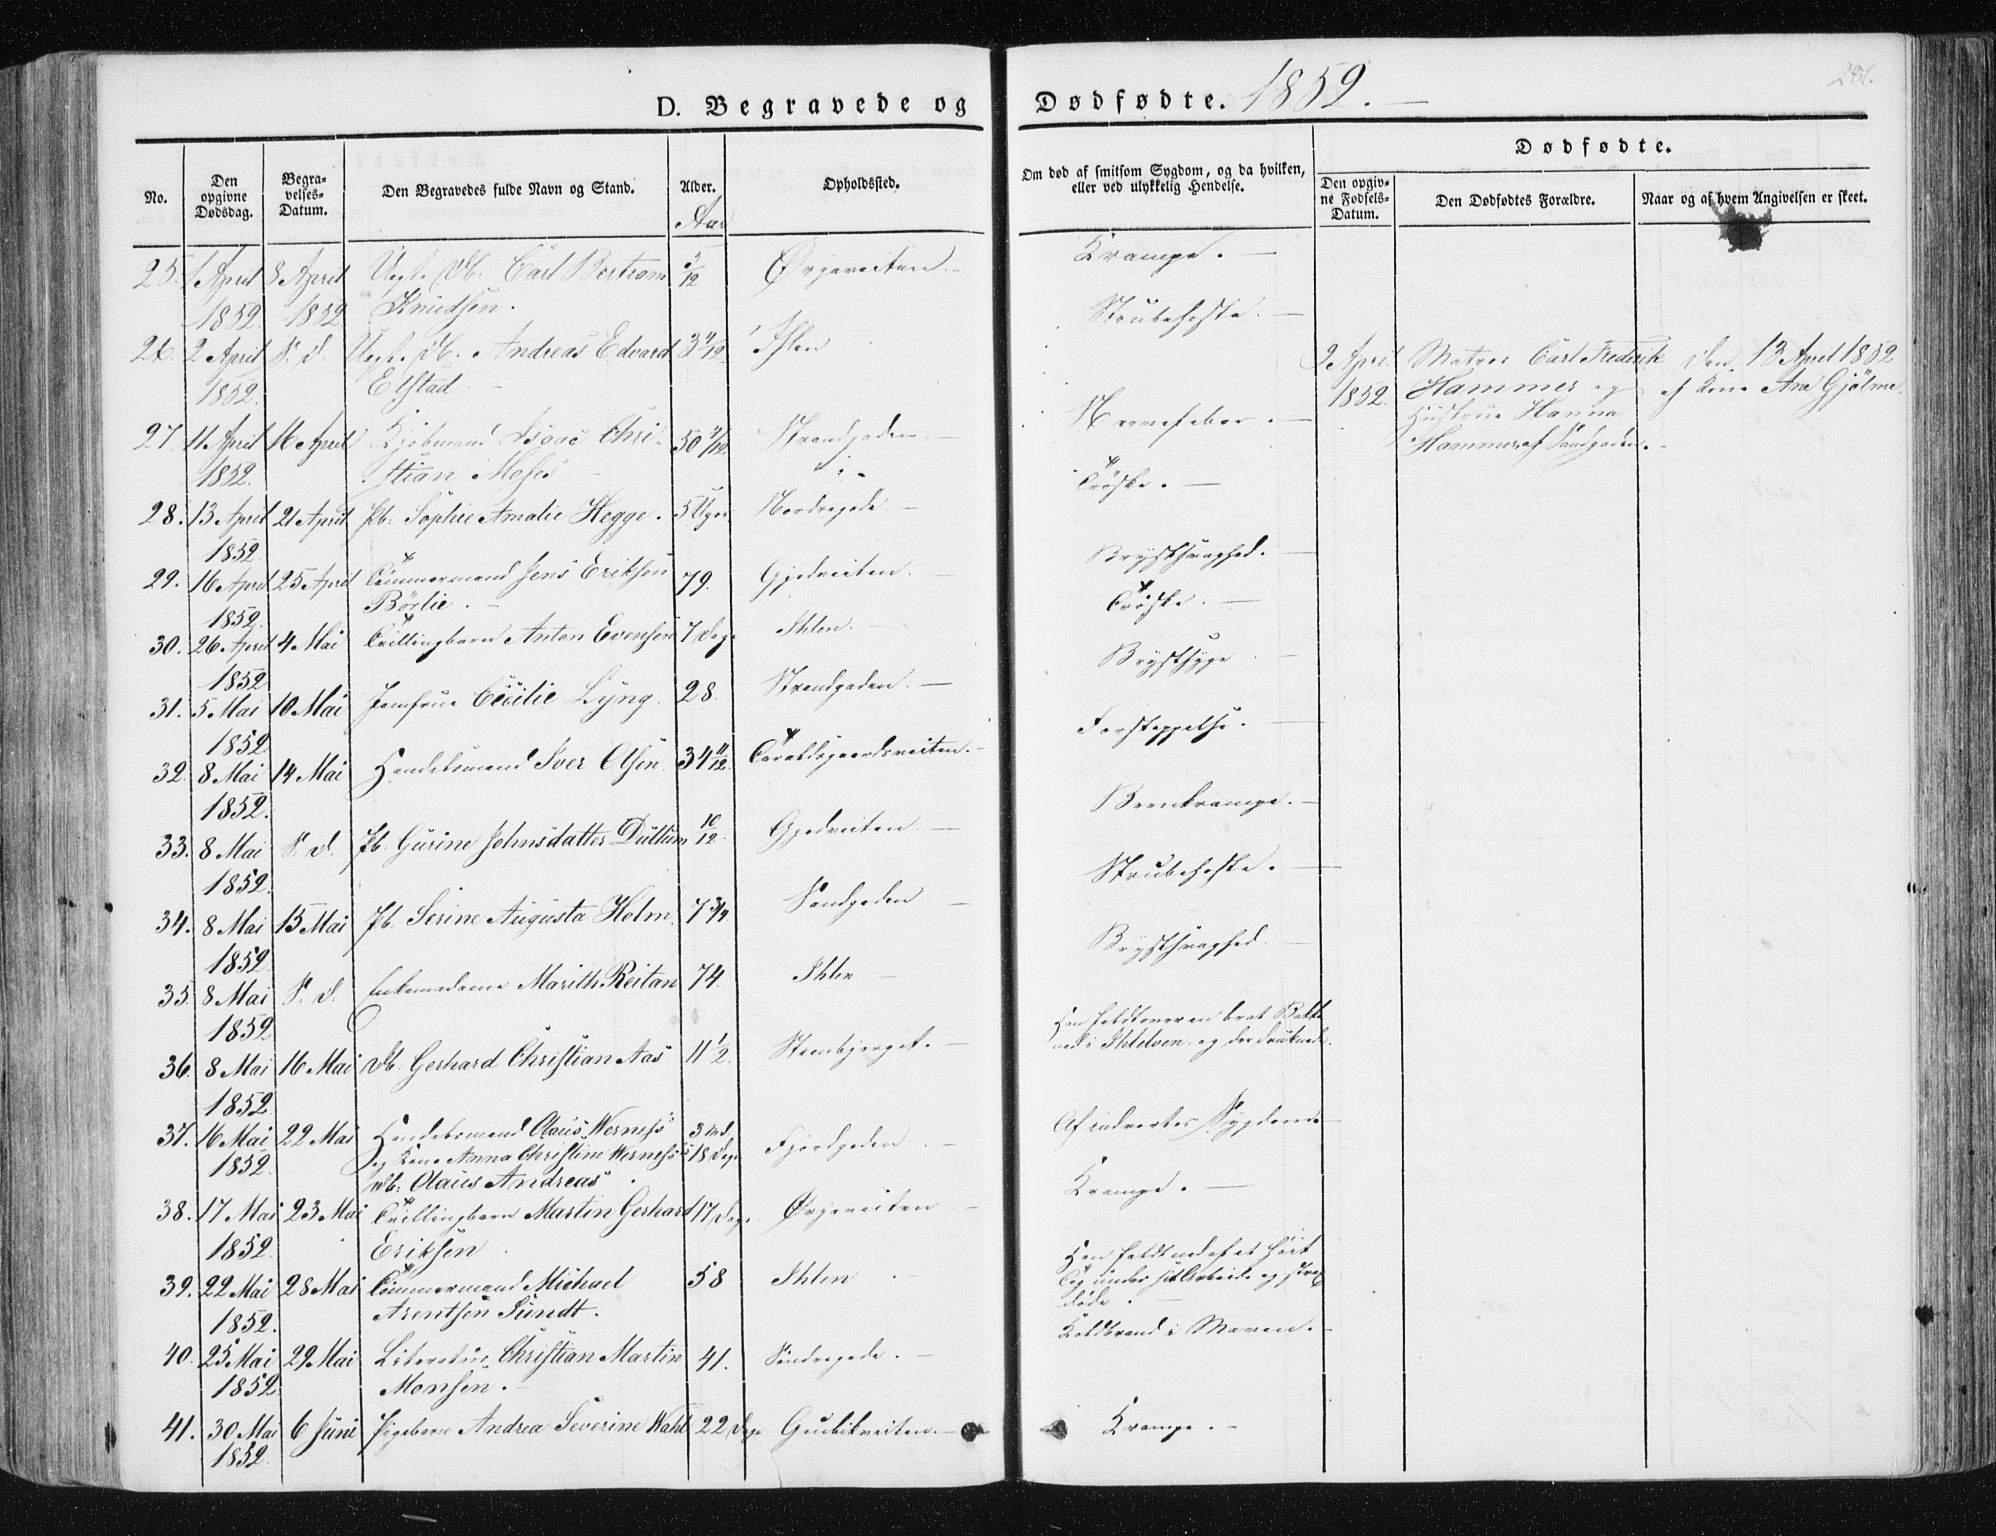 D. Begravede og Dødfødte. 1852.
281.
No.
Den opgivne Dødsdag.
Begravelses-Datum.
Den Begravedes fulde Navn og Stand.
Alder.
Aar
Opholdssted.
Om død af smitsom Sygdom, og da hvilken,
eller ved ulykkelig Hendelse.
Dødfødte.
Den opgivne Fødsels-Datum.
Den Dødfødtes Forældre.
Naar og af hvem Angivelsen er skeet.
25. 1 April 8 April Db. Carl Bertram Ørjeveiten. Krampe.
1852. 1852 Knudsen.
26. 2 April S. D. Db. Andreas Edvard 3 11/12 Ihlen Strubehoste.
1852. Elstad
27. 11 April 16 April Kjøbmand Isaac Chri- 50 Strandgaden Nervefeber.
1852. stian Moses
28. 13 April 21 April Pb: Sophie Amalie Hegge. 5 Uger Nordregade Trøske.
1852.
29. 16 April 25 April Tømmermand Jens Eriksen 79. Gjedveiten. Brystsvaghed.
1852. Börlie.
30. 26 April 4 Mai Tvillingbarn Anton Evensen 7 Dage Ihlen. Trøske.
1852
31. 5 Mai 10 Mai Jomfrue Cecilie Lyng. 28. Strandgaden. Brystsyge
1852
32. 8 Mai 14 Mai Handelsmand Iver Olsen 34 11/12. Taraldsgaardsveiten. Forstoppelse.
1852.
33. 8 Mai S. D. Pb: Gurine Johnsdatter Dullum 10/12. Gjedveiten Barnkrampe.
1852.
34. 8 Mai 15 Mai Pb. Serine Augusta Holm. 7 3/4 Sandgaden Strubehoste.
1852.
35. 8 Mai S. D. Enkemadame Marith Reitan 74. Ihlen Brystsvaghed.
1852.
36. 8 Mai 16 Mai Db: Gerhard Christian Aas 11 1/2. Steenbjerget. Han faldt over en brat Bakke
1852. ned i Ihlelven og der druknede.
37. 16 Mai 22 Mai Handelsmand Olaus Werness 3 Md. Fjordgaden Af indvortes Sygdom
1852. og Kone Anna Christine Werness's 18 Dage
Db: Olaus Andreas.
38. 17 Mai 23 Mai Tvillingbarn Martin Gerhard 17 Dage Ørjeveiten Krampe.
1852. Eriksen
39. 22 Mai 28 Mai Tømmermand Michael 58 Ihlen Han faldt ned af et høit
1852. Arentsen Sundt. Tag under sit Arbeide og strax
døde.
40. 25 Mai 29 Mai Christian Martin 41. Søndregade. Koldbrand i Maven.
1852. Monsen.
41. 30 Mai 6 Juni Pigebarn Andrea Severine Wahl 22 Dage Gubbikveiten. Krampe.
1852.
2 April Matros Carl Frederik Den 13 April 1852
1852. Hammer og af Kone Ane Gjölme.
Hustrue Hanna
Hammer af Sandgaden.